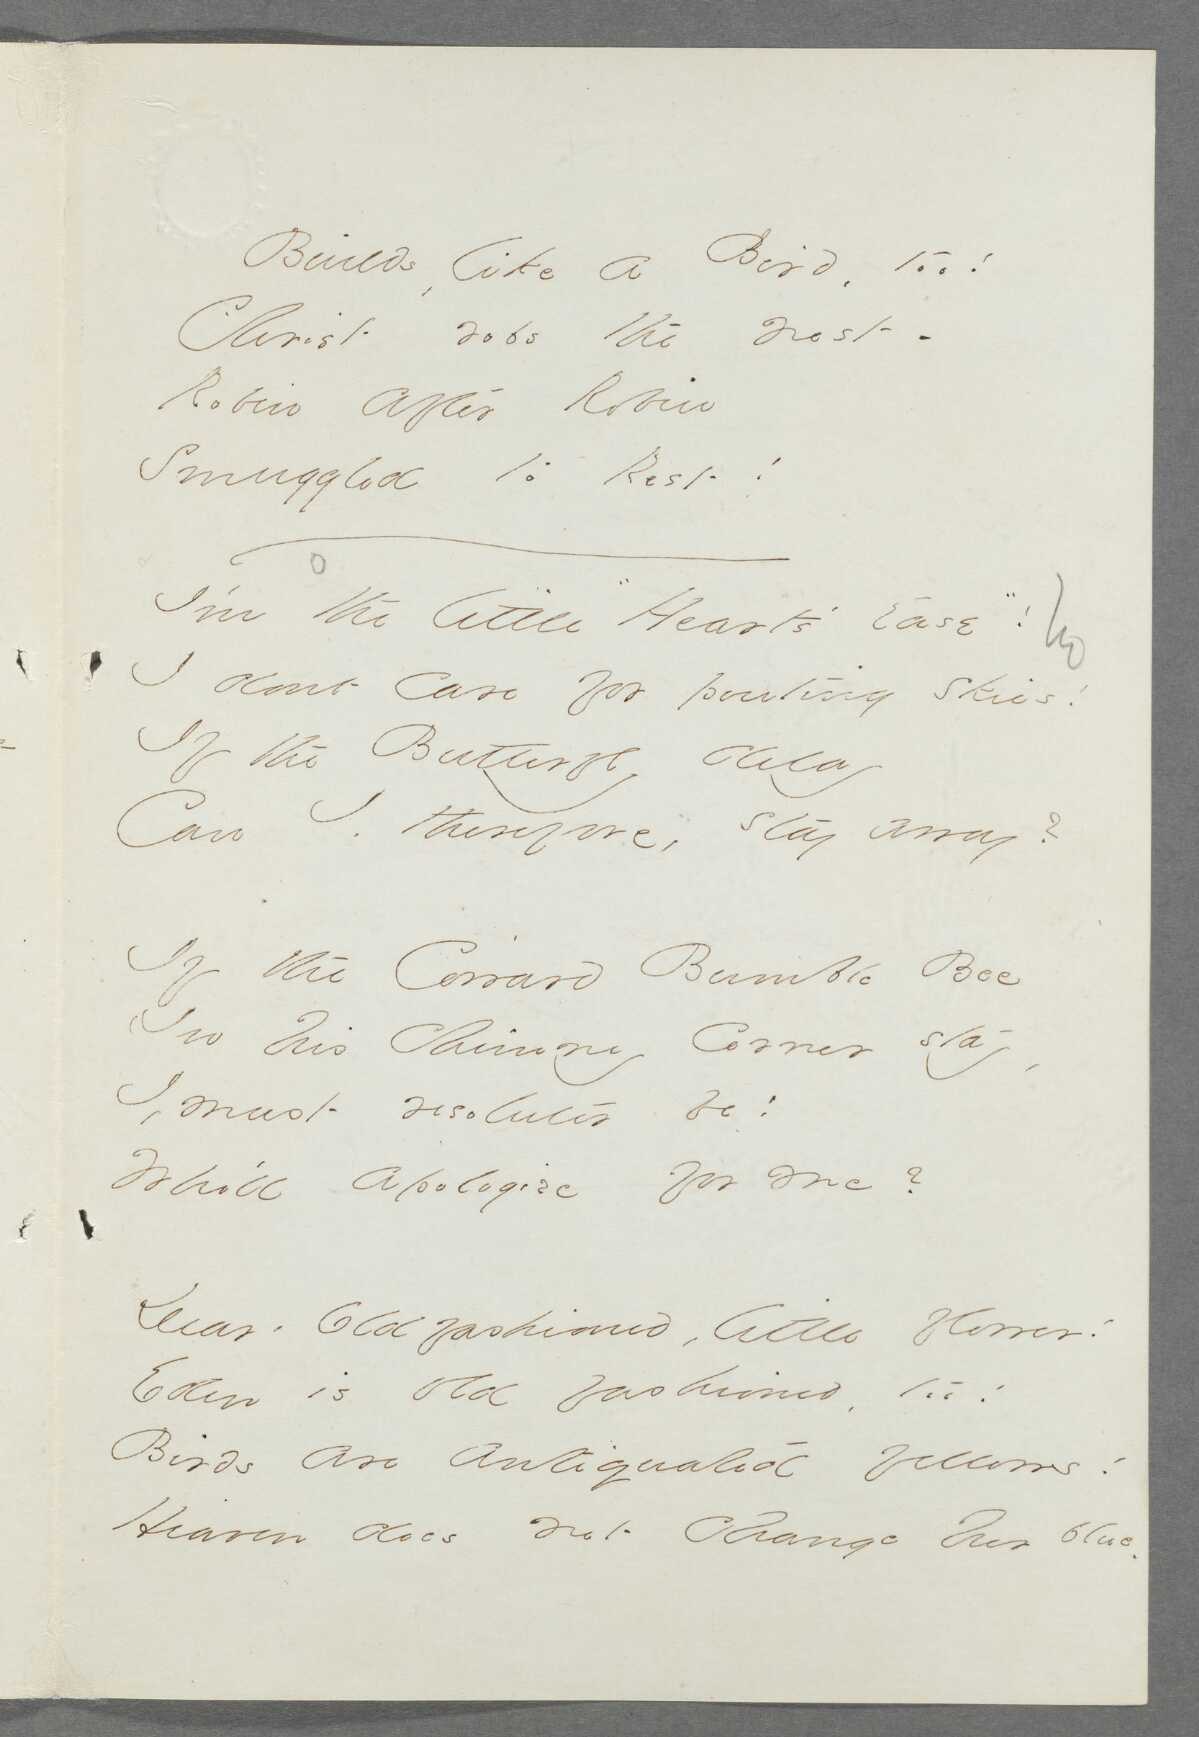 Builds, like a Bird, too!
Christ robs the nest -
Robin after Robin
Smuggled to Rest!
I'm the little "Heart's Ease"!
I dont care for pouting skies!
If the Butterfly delay
Can I, therefore, stay away?
If the Coward Bumble Bee
In his Chimney Corner stay,
I, must resoluter be!
Who'll apologize for me?
Dear, Old fashioned, little flower!
Eden is old fashioned, too!
Birds are antiquated fellows!
Heaven does not change her blue.